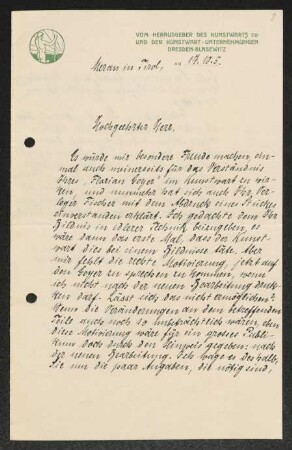 VOM HERAUSGEBER DES KUNSTWARTS
UND DEN KUNSTWART-UNTERNEHMUNGEN
DRESDEN-BLASEWITZ
Meran in Tirol, 17.10.5.
Hochgeehrter Herr,
Es würde mir besondere Freude machen, ein-
mal auch meinerseits für das Verständnis
Ihres „Florian Geyer" im Kunstwart zu wir-
ken, und nunmehr hat sich auch Ihr Ver-
leger Fischer mit dem Abdruck eines Stückes
einverstanden erklärt. Ich gedachte dem Ihr
Bildnis in edlerer Technik beizugeben, es
wäre dann das erste Mal, dass der Kunst-
wart dies bei einem Bildnisse täte. Aber
mir fehlt die rechte Motivierung, jetzt auf
den Geyer zu sprechen zu kommen, wenn
ich nicht nach der neuen Bearbeitung drucken
darf. Lässt sich das nicht ermöglichen?
Wenn die Veränderungen an dem betreffenden
Teile auch noch so unbeträchtlich wären, eben
diese Motivierung wäre für ein grosses Publi-
kum doch durch den Hinweis gegeben: nach
der neuen Bearbeitung. Ich wage es deshalb,
Sie um die paar Angaben, die nötig sind,